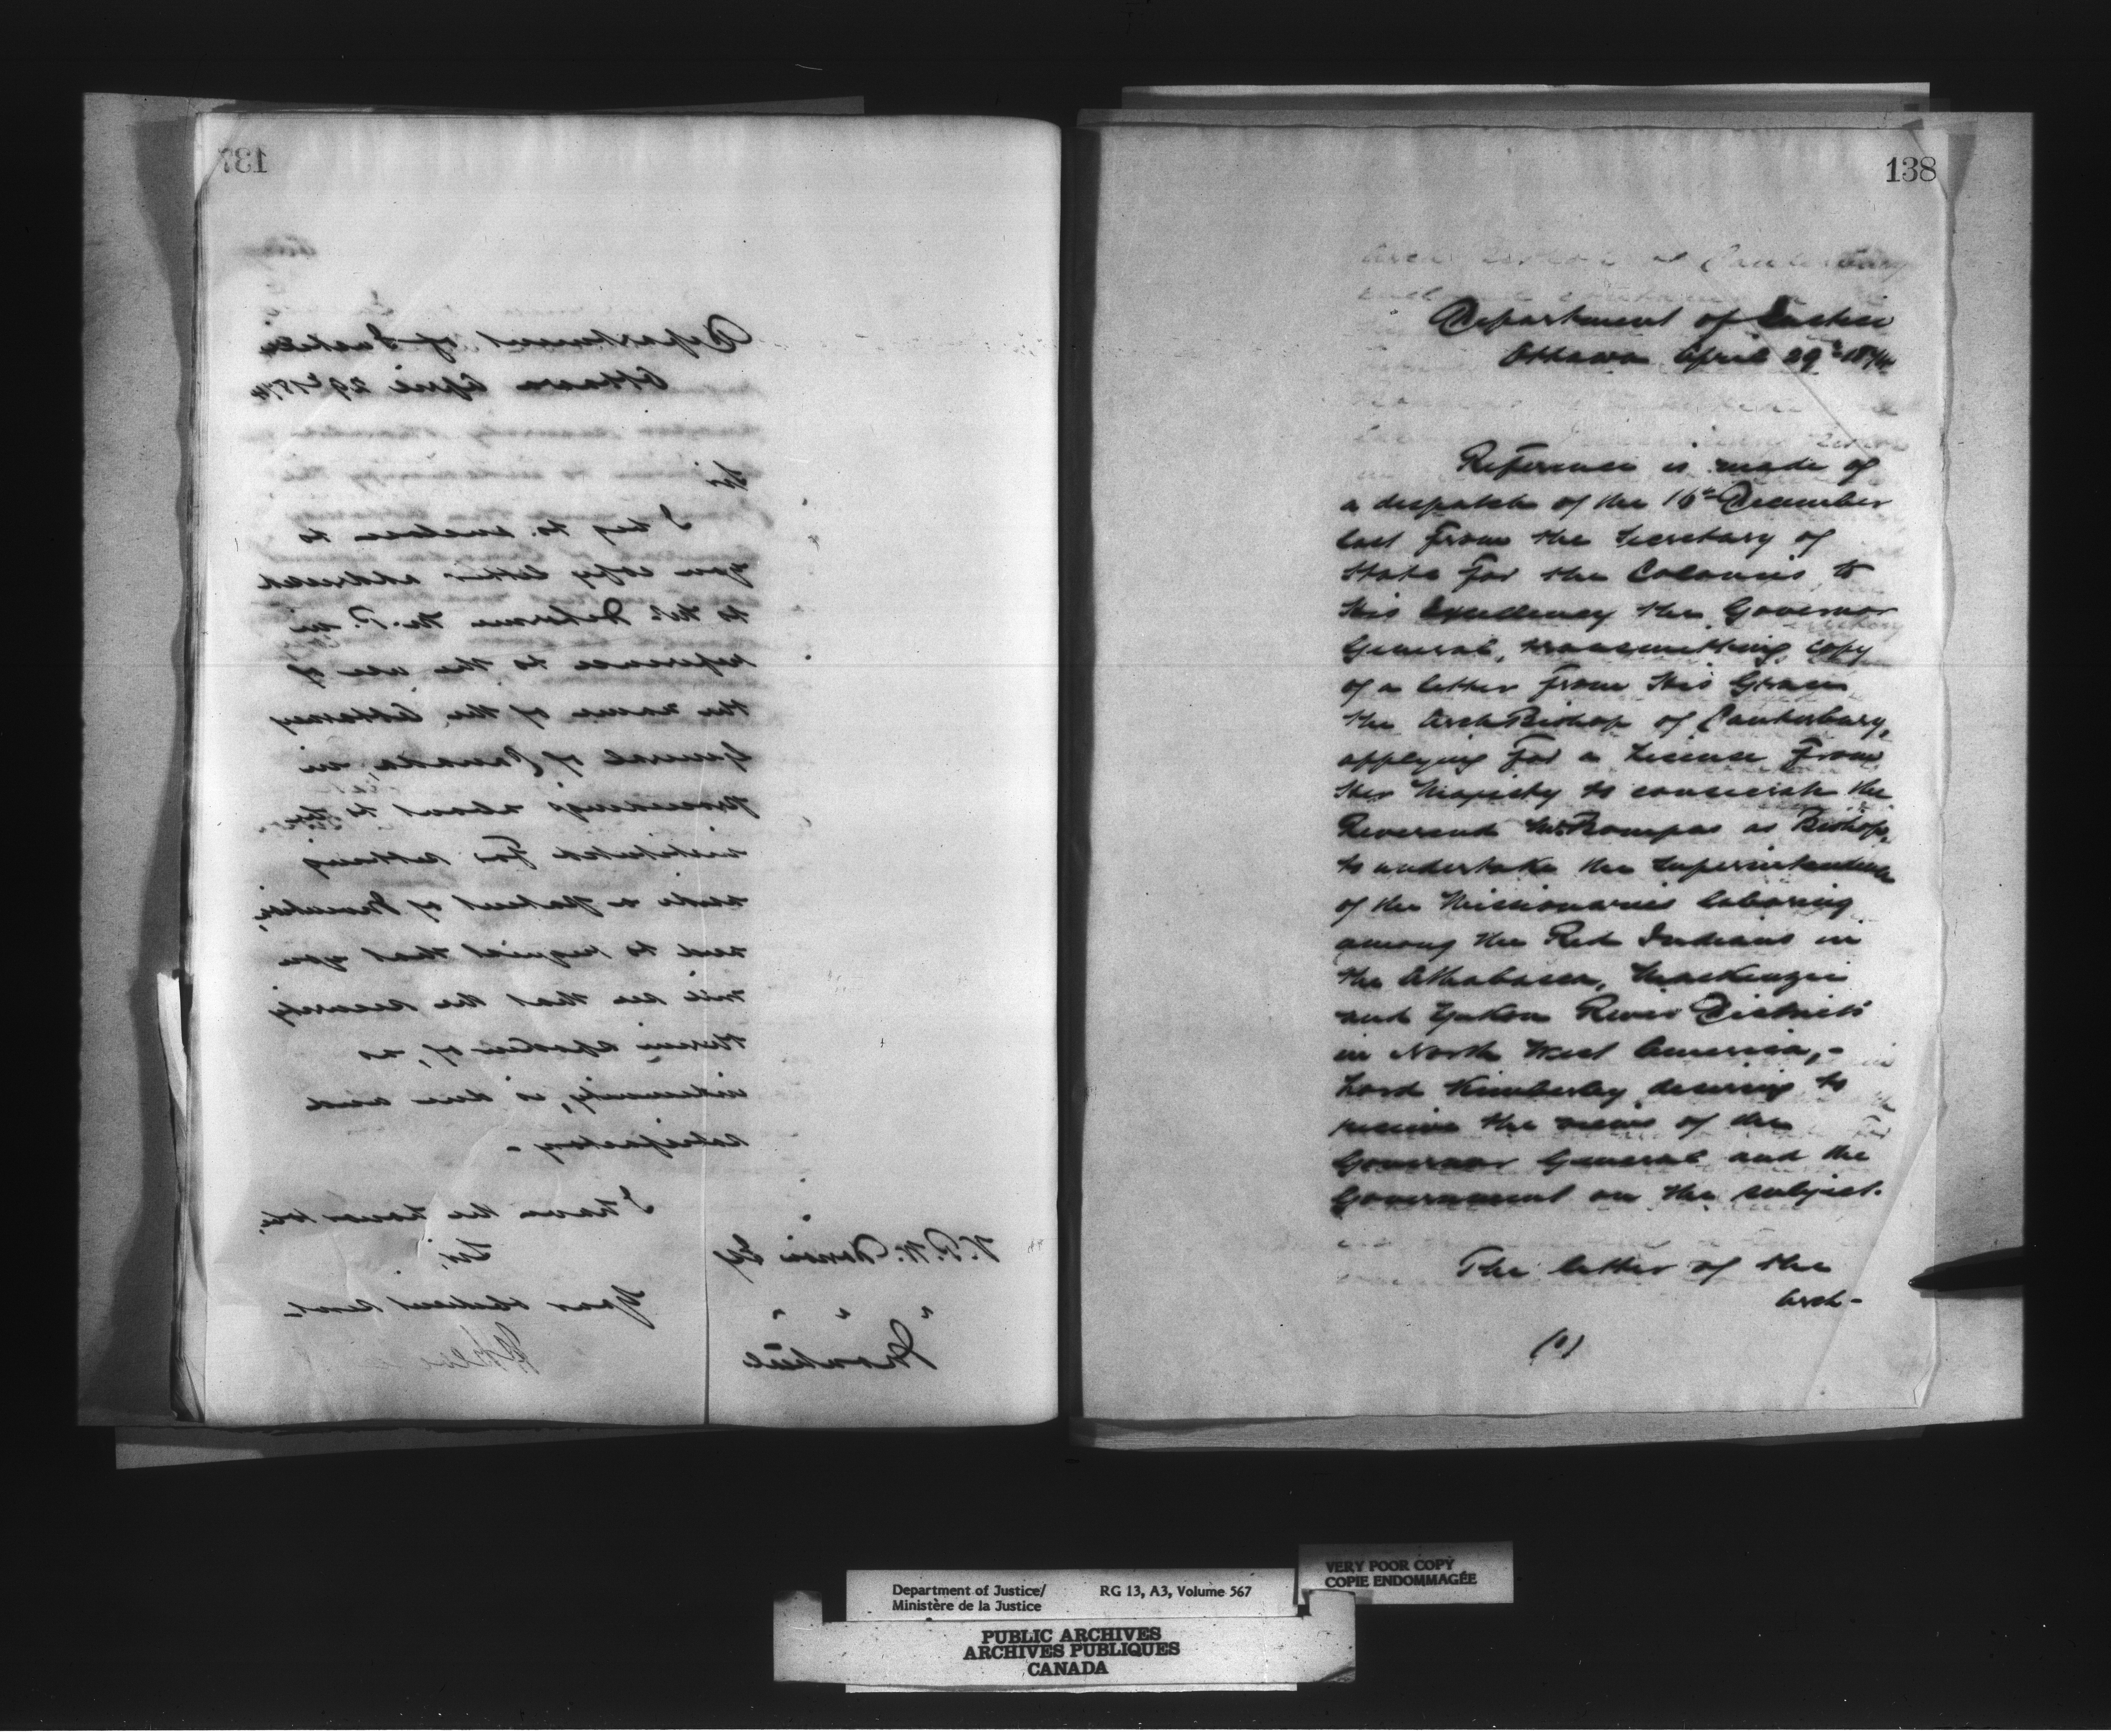 137
Department of Justice
Ottawa April 29th 1874
Sir
I beg to enclose to
you copy letter addressed
to Mr. Delorme M.P. in
reference to the use of
the name of the Attorney
General of Canada, in
proceedings about to be
instituted for setting
aside a Patent of Invention,
and to request that you
will see that the security
therein spoken of, as
indemnity, is due and
satisfactory.
I have the honor to be,
Sir,
Your obedient Servt.
V. P. W. Dorion Esq
" " "
Montreal
138
Department of Justice
Ottawa April 29th 1874
Reference is made of
a despatch of the 16th December
last from the Secretary of
State for the Colonies to
His Excellency the Governor
General, transmitting copy
of a letter from His Grace
the Arch Bishop of Canterbury,
applying for a License from
Her Majesty to consecrate the
Reverend Mr. Bompas as Bishop,
to undertake the Superintendence
of the Missionaries laboring
among the Red Indians in
the Athabasca, Mackenzie
and Yukon River Districts
in North West America, -
Lord Kimberley desiring to
receive the views of the
Governor General and the
Government on the subject.
The letter of the
Arch-
(1)
Department of Justice/
Ministère de la Justice
RG 13, A3, Volume 567
VERY POOR COPY
COPIE ENDOMMAGÉE
PUBLIC ARCHIVES
ARCHIVES PUBLIQUES
CANADA